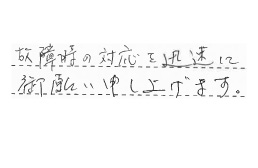 故障時の対応を迅速に
御願い申し上げます。